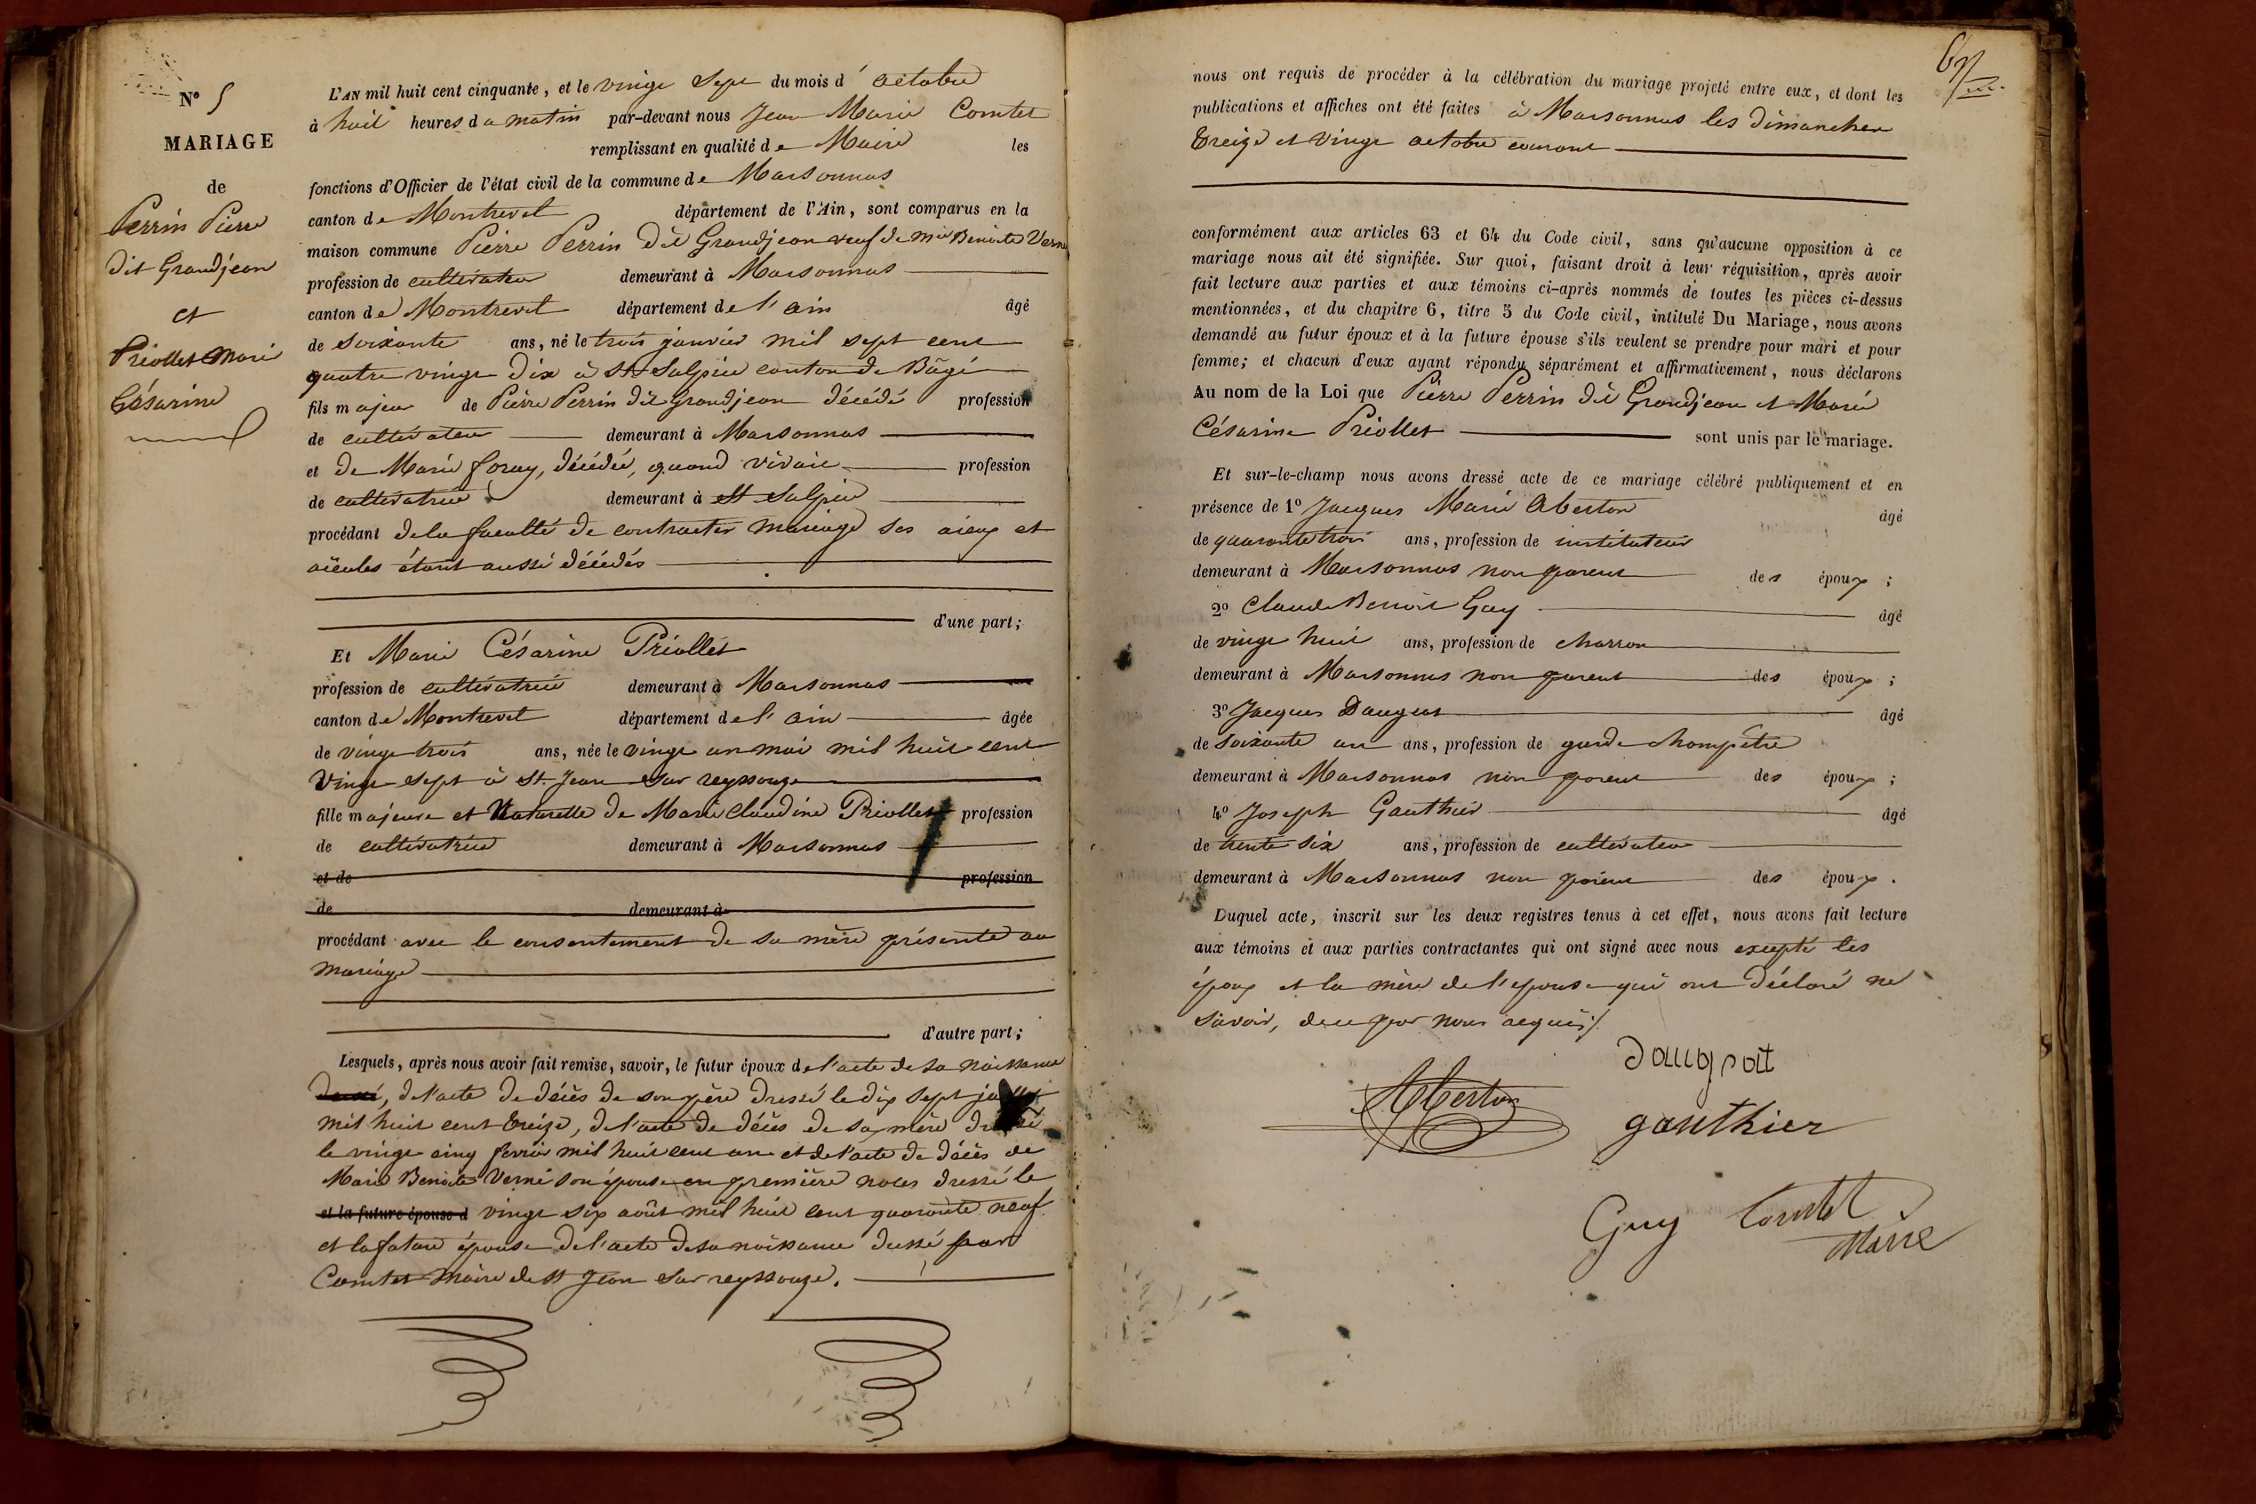 N° 5
MARIAGE
de
Perrin Pierre
dit Grandjean
et
Priollet Marie
Césarine
L'AN mil huit cent cinquante, et le vingt sept du mois d'octobre
à huit heures du matin par-devant nous Jean Marie Comtet
remplissant en qualité de Maire les
fonctions d'Officier de l'état civil de la commune de Marsonnas
canton de Montrevel département de l'Ain, sont comparus en la
maison commune Pierre Perrin dit Grandjean veuf de Mie Benoite Verne
profession de cultivateur demeurant à Marsonnas
canton de Montrevel département de l'ain âgé
de soixante ans, né le trois janvier mil sept cent
quatre vingt dix à St Sulpice canton de Bâgé
fils majeur de Pierre Perrin dit grandjean décédé profession
de cultivateur demeurant à Marsonnas
et de Marie foray, décédée, quand vivait profession
de cultivatrice demeurant à St Sulpice
procédant de la faculté de contracter mariage ses aieux et
aïeules étant aussi décédés
d'une part;
Et Marie Césarine Priollet
profession de cultivatrice demeurant à Marsonnas
canton de Montrevel département de l'ain âgée
de vingt trois ans, née le vingt un mai mil huit cent
vingt sept à St. Jean sur reyssouze
fille majeure et Naturelle de Marie Claudine Priollet profession
de cultivatrice demeurant à Marsonnas
et de profession
de demeurant à
procédant avec le consentement de sa mère présente au
mariage
d'autre part;
Lesquels, après nous avoir fait remise, savoir, le futur époux de l'acte de sa naissance
, de l'acte de décès de son père dressé le dix sept
mil huit cent treize, de l'acte de décès de sa mère dressé
le vingt cinq fevrier mil huit cent un et de l'acte de décès de
Marie Benoite Verne son épouse en première noces dressé le
et la future épouse d vingt six août mil huit cent quarante neuf
et la future épouse de l'acte de sa naissance dressé par
Comtet maire de St Jean sur reyssouze.
67
nous ont requis de procéder à la célébration du mariage projeté entre eux, et dont les
publications et affiches ont été faites à Marsonnas les dimanches
treize et vingt octobre courant
conformément aux articles 63 et 64 du Code civil, sans qu'aucune opposition à ce
mariage nous ait été signifiée. Sur quoi, faisant droit à leur réquisition, après avoir
fait lecture aux parties et aux témoins ci-après nommés de toutes les pièces ci-dessus
mentionnées, et du chapitre 6, titre 5 du Code civil, intitulé Du Mariage, nous avons
demandé au futur époux et à la future épouse s'ils veulent se prendre pour mari et pour
femme; et chacun d'eux ayant répondu séparément et affirmativement, nous déclarons
Au nom de la Loi que Pierre Perrin dit Grandjean et Marie
Césarine Priollet sont unis par le mariage.
Et sur-le-champ nous avons dressé acte de ce mariage célébré publiquement et en
présence de 1° Jacques Marie Aberton âgé
de quarante trois ans, profession de instituteur
demeurant à Marsonnas non parent des époux;
2° Claude Benoit Guy âgé
de vingt huit ans, profession de charron
demeurant à Marsonnas non parent des époux;
3° Jacques Daugnat âgé
de soixante un ans, profession de garde champêtre
demeurant à Marsonnas non parent des époux;
4° Joseph Gauthier âgé
de trente six ans, profession de cultivateur
demeurant à Marsonnas non parent des époux.
Duquel acte, inscrit sur les deux registres tenus à cet effet, nous avons fait lecture
aux témoins et aux parties contractantes qui ont signé avec nous excepté les
époux et la mère de l'épouse qui ont déclaré ne
savoir, de ce par nous requis
Aberton
gauthier
Guy Comtet
Maire